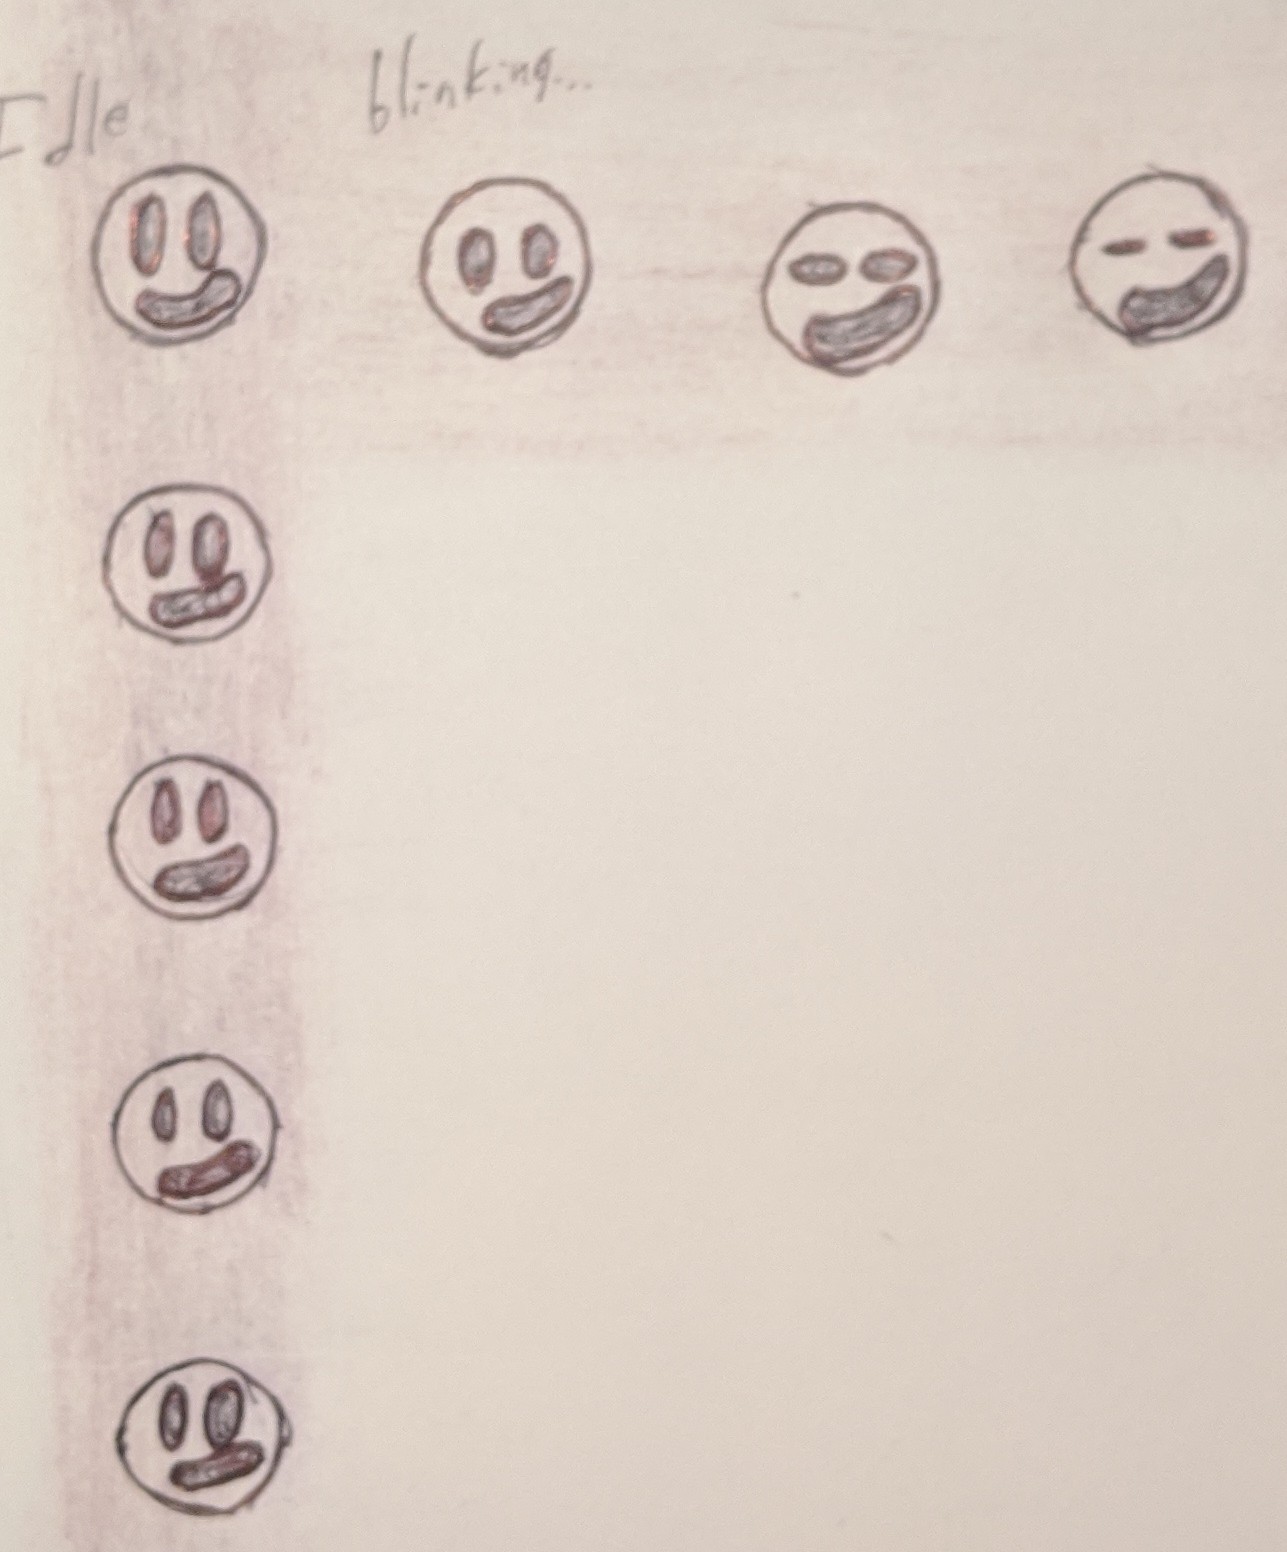 Idle
blinking...